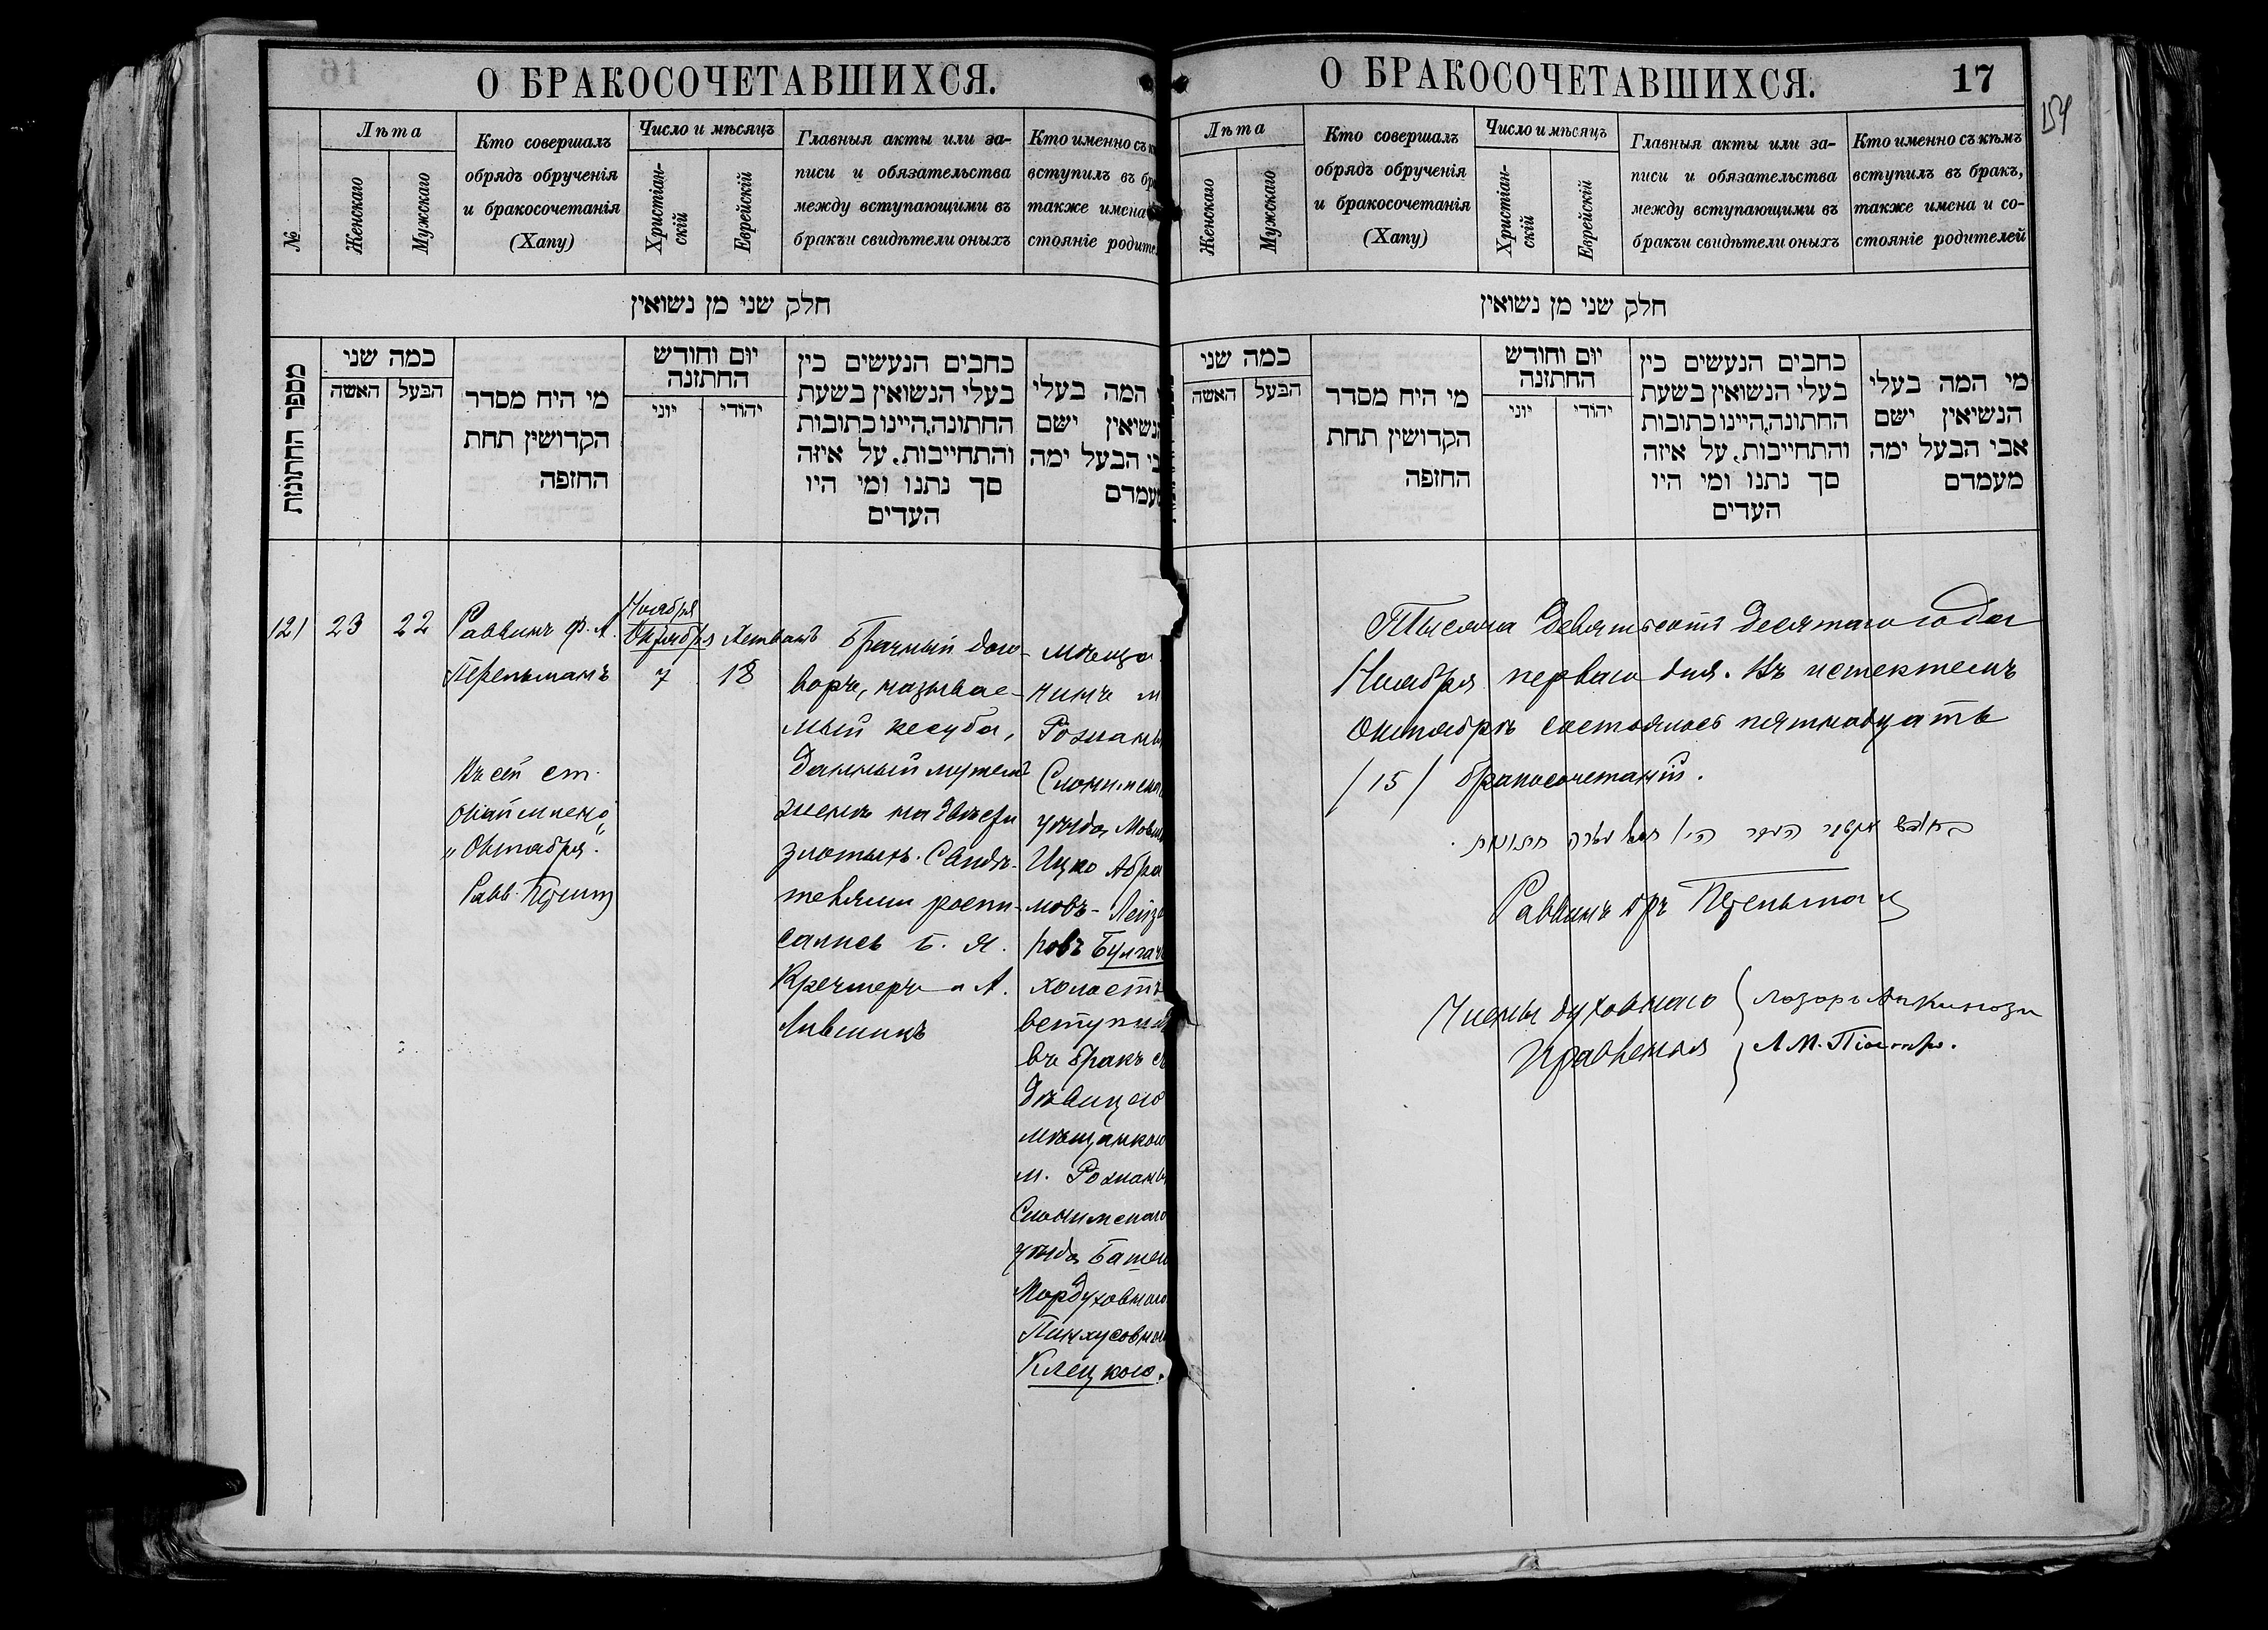 О БРАКОСОЧЕТАВШИХСЯ.
№
Лѣта
Женскаго
Мужскаго
Кто совершалъ
обрядъ обрученія
и бракосочетанія
(Хапу)
Число и мѣсяцъ
Христіан-
скій
Еврейскій
Главныя акты или за-
писи и обязательства
между вступающими въ
бракъи свидѣтели оныхъ
Кто именно съ
вступилъ въ бр
также имена
стояніе родите
חלק שני מן נשואין
מספר החתונות
כמה שני
האשה
הבעל
מי היח מסדר
הקדושין תחת
החופה
יום וחודש
החתונה
יוני
יהודי
כחבים הנעשים כין
בעלי הנשואין בשעת
החתונה,היינו כתובות
והתחייבות, על איזה
סך נתנו ומי היו
העדים
המה בעלי
הנשיאין ישם
אבי הבעל ימה
מעמדם
121
23
22
Раввинъ
Перельманъ
Въ сей ст.
"Октября".
Равв.
Ноября
Октября
7
18
Брачный дого-
воръ, называе-
мый кесуба,
данный мужемъ
женѣ на двѣсти
злотыхъ. Свидѣ-
телями роспи-
сались Б. Я.
Кречмеръ и А.
Лившицъ
мѣща-
нинъ м
Рожаны
Слонимска
уѣзда Мовш
Ицко Абра
мовъ-Лейзе
ровъ Булган
холостъ
вступилъ
въ бракъ съ
дѣвицею
мѣщанкою
м. Рожаны
Слонимскаго
уѣзда
Мордуховною
Пинхусовною
Клецкою.
О БРАКОСОЧЕТАВШИХСЯ.
17
154
Лѣта
Женскаго
Мужскаго
Кто совершалъ
обрядъ обрученія
и бракосочетанія
(Хапу)
Число и мѣсяцъ
Христіан-
скій
Еврейскій
Главныя акты или за-
писи и обязательства
между вступающими въ
бракъи свидѣтели оныхъ
Кто именно съ кѣмъ
вступилъ въ бракъ,
также имена и со-
стояніе родителей
חלק שני מן נשואין
כמה שני
האשה
הבעל
מי היח מסדר
הקדושין תחת
החופה
יום וחודש
החתונה
יוני
יהודי
כחבים הנעשים כין
בעלי הנשואין בשעת
החתונה,היינו כתובות
והתחייבות, על איזה
סך נתנו ומי היו
העדים
מי המה בעלי
הנשיאין ישם
אבי הבעל ימה
מעמדם
Тысяча девятьсотъ десятаго года
Ноября перваго дня. Въ истекшемъ
Октябрѣ состоялось пятнадцать
/15/ бракосочетаній.
עשרה חתונות
Раввинъ Перельман
Члены духовнаго
правленія
Лазарь
А М.